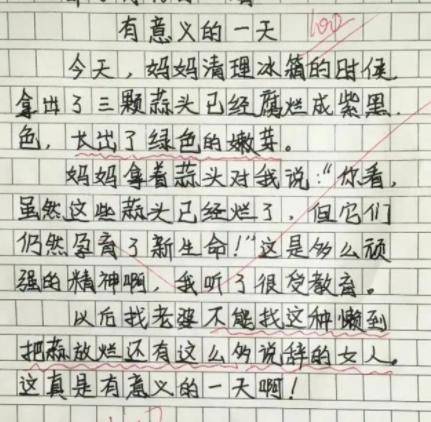 有意义的一天
100
今天，妈妈清理冰箱的时候
拿出了三颗蒜头已经腐烂成紫黑
色，长出了绿色的嫩芽。
妈妈拿着蒜头对我说："你看，
虽然这些蒜头已经烂了，但它们
仍然孕育了新生命！"这是多么顽
强的精神啊，我听了很受教育。
以后找老婆不能找这种懒到
把蒜放烂还有这么多说辞的女人。
这真是有意义的一天啊！